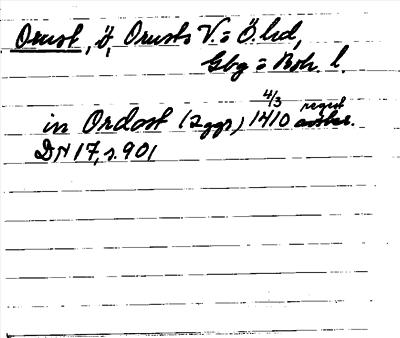 Orust, ö, Orusts V. = Ö. hd,
Gbg = Boh. l.
in Ordost (2 ggr) 4/3 1410 regest
DN 17, s. 901